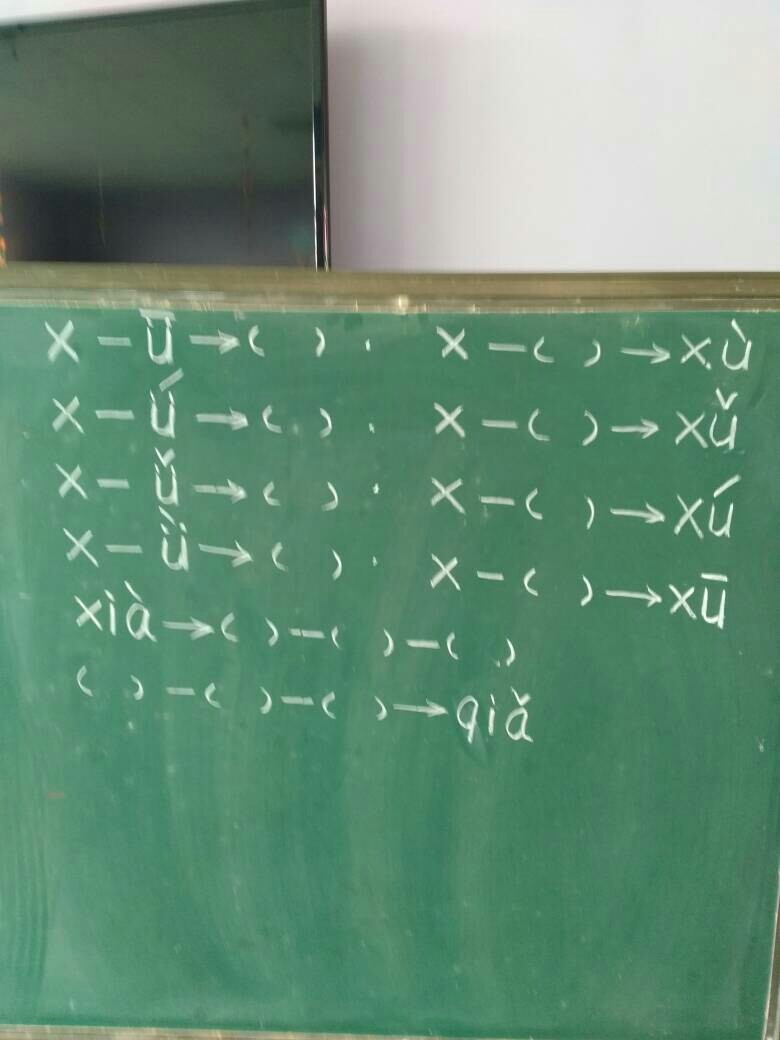 x — ǖ → ( ). x — ( ) → xù
x — ǘ → ( ). x — ( ) → xǔ
x — ǚ → ( ). x — ( ) → xú
x — ǜ → ( ). x — ( ) → xū
xià → ( ) — ( ) — ( )
( ) — ( ) — ( ) → qiǎ